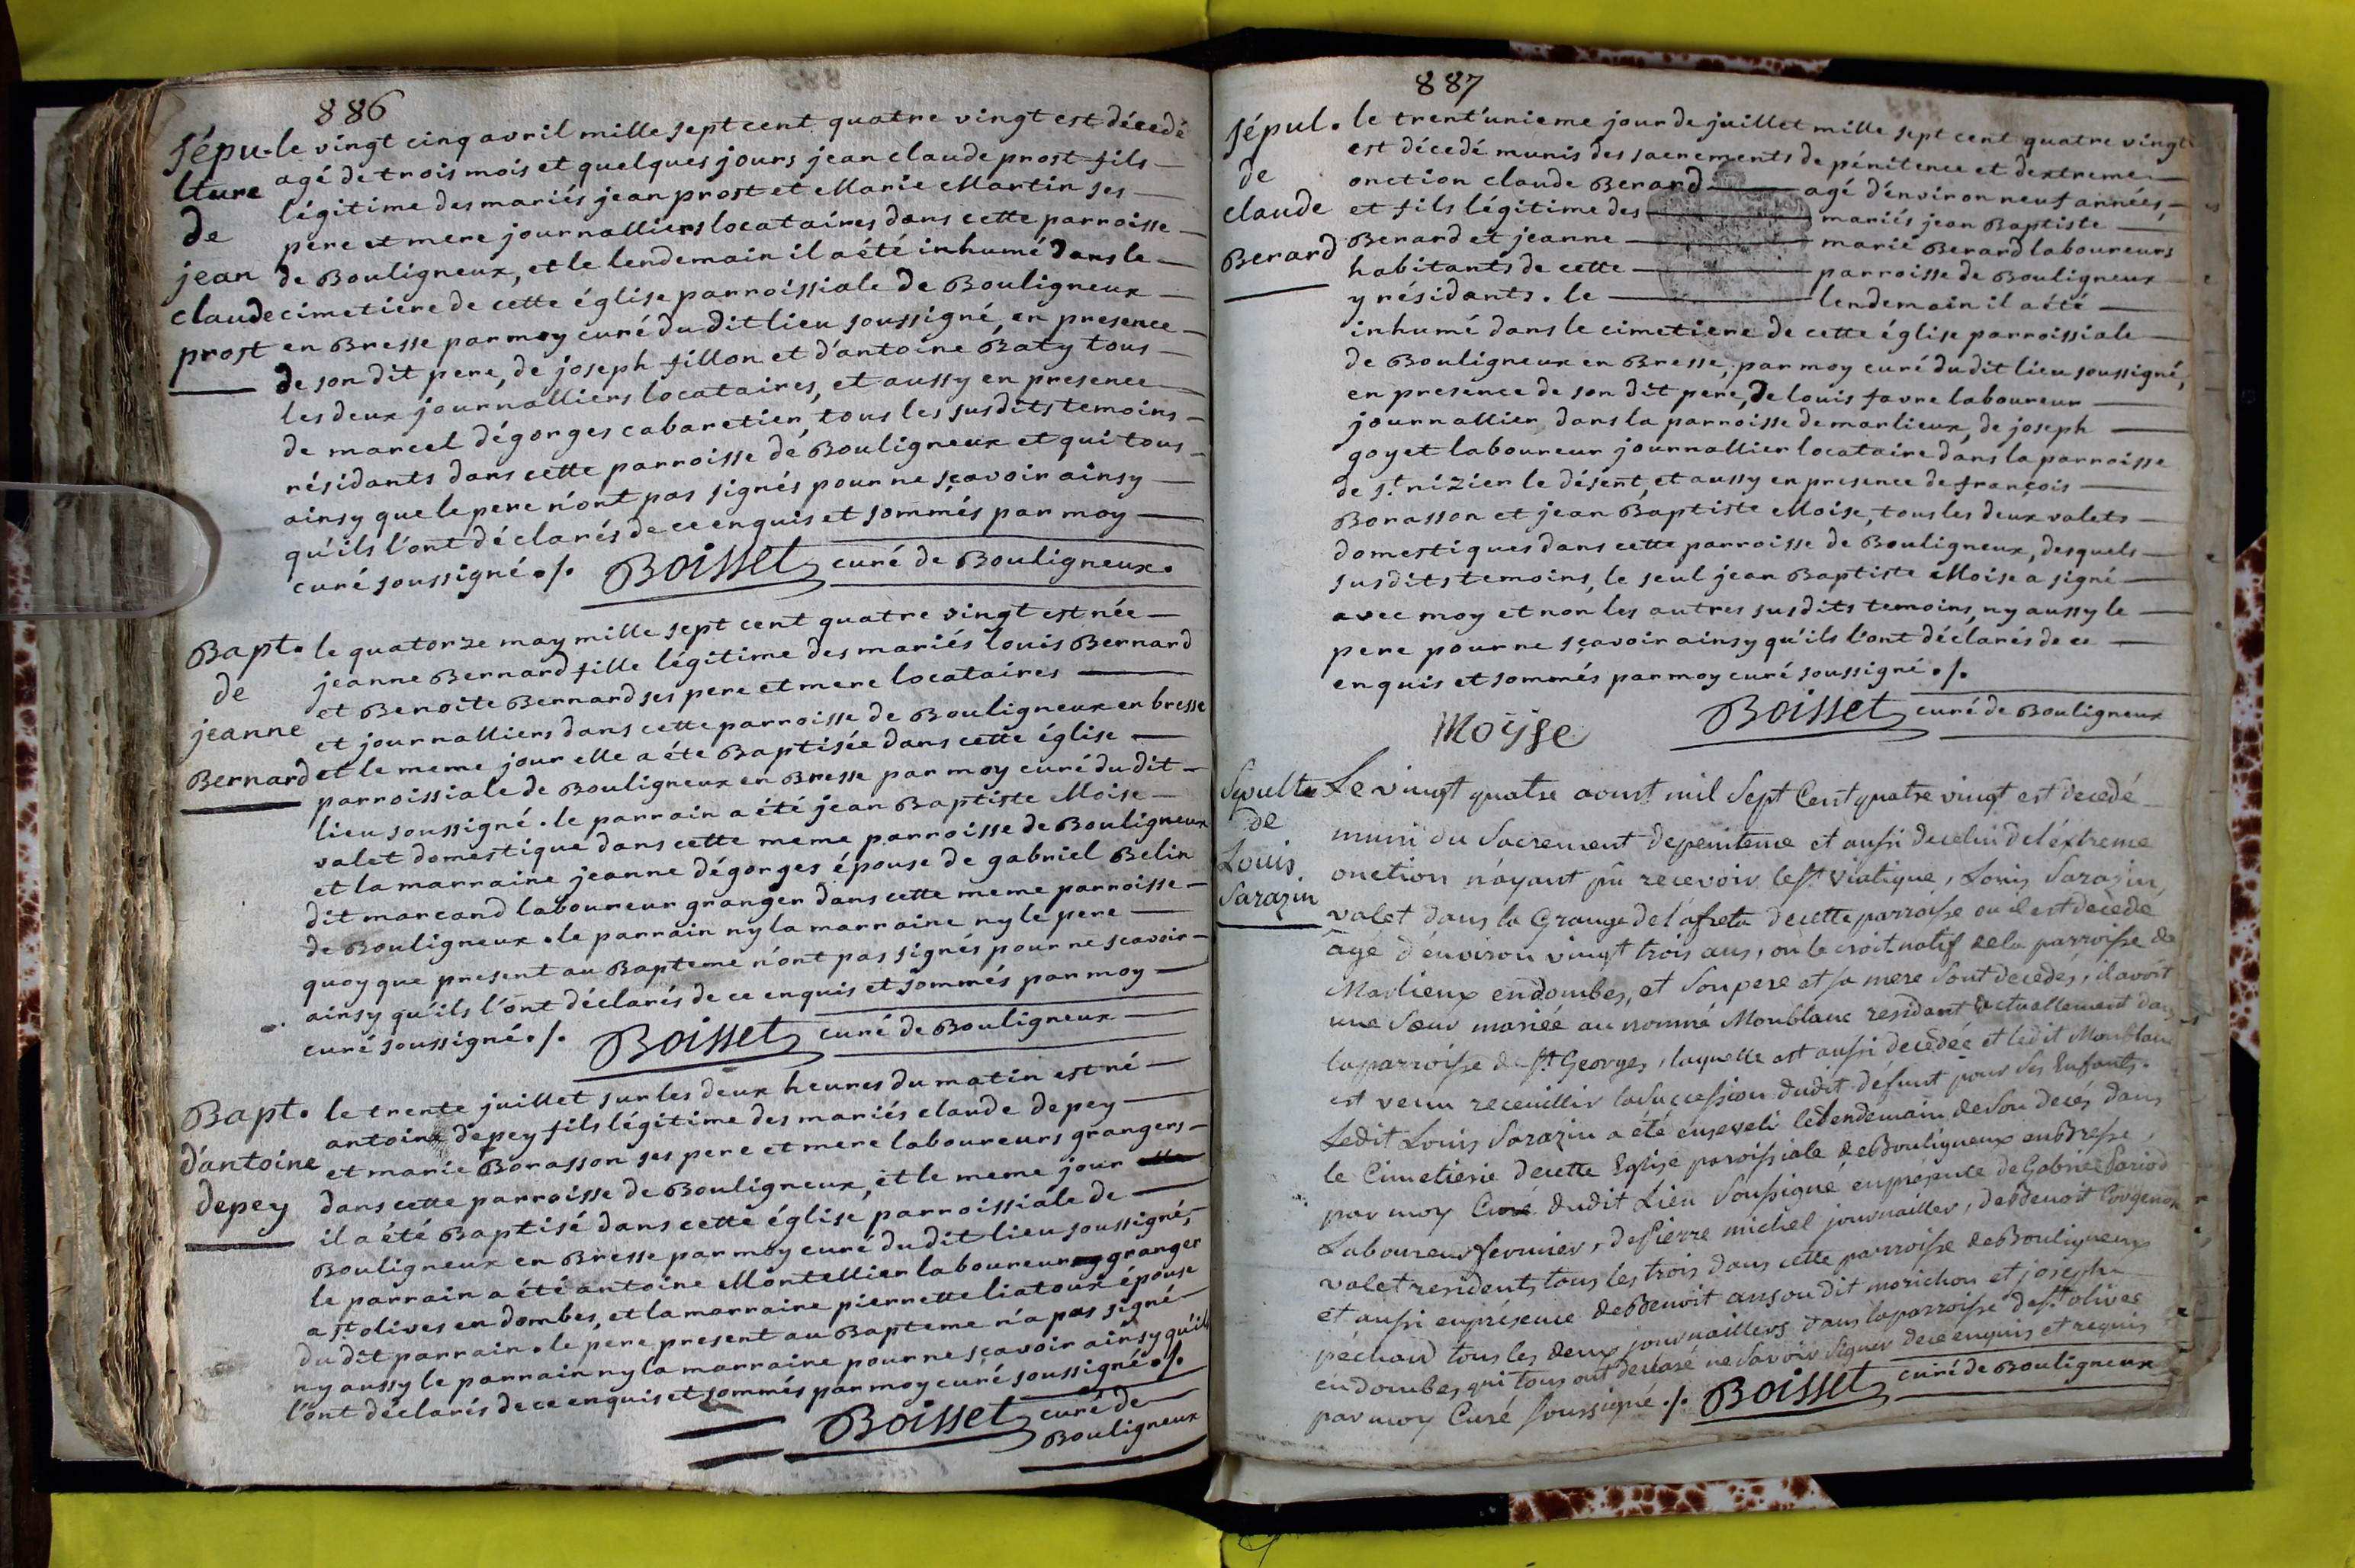 886
sépu-
lture
de
jean
claude
prost
le vingt cinq avril mille sept cent quatre vingt est décedé
agé de trois mois et quelques jours jean claude prost fils
légitime des mariés jean prost et Marie Martin ses
pere et mere journalliers locataires dans cette parroisse
de Bouligneux, et le lendemain il a été inhumé dans le
cimetiere de cette église parroissiale de Bouligneux
en Bresse par moy curé du dit lieu soussigné, en presence
de son dit pere, de joseph fillon et d'antoine Baty tous
les deux journalliers locataires, et aussy en presence
de marcel dégorges cabaretier, tous les susdits temoins
résidants dans cette parroisse de Bouligneux et qui tous
ainsy que le pere n'ont pas signés pour ne sçavoir ainsy
qu'ils l'ont déclarés de ce enquis et sommés par moy
curé soussigné ./. Boisset curé de Bouligneux.
Bapt.
de
jeanne
Bernard
le quatorze may mille sept cent quatre vingt est née
jeanne Bernard fille légitime des mariés louis Bernard
et Benoite Bernard ses pere et mere locataires
et journalliers dans cette parroisse de Bouligneux en bresse
et le meme jour elle a été Baptisée dans cette église
parroissiale de Bouligneux en Bresse par moy curé du dit
lieu soussigné. le parrain a été jean Baptiste Moise
valet domestique dans cette meme parroisse de Bouligneux
et la marraine jeanne dégorges épouse de gabriel Belin
dit marcand laboureur granger dans cette meme parroisse
de Bouligneux. le parrain ny la marraine ny le pere
quoy que present au Bapteme n'ont pas signés pour ne scavoir
ainsy qu'ils l'ont déclarés de ce enquis et sommés par moy
curé soussigné ./. Boisset curé de Bouligneux
Bapt.
d'antoine
depey
le trente juillet sur les deux heures du matin est né
antoine depey fils légitime des mariés claude depey
et marie Borasson ses pere et mere laboureurs grangers
dans cette parroisse de Bouligneux, et le meme jour
il a été Baptisé dans cette église parroissiale de
Bouligneux en Bresse par moy curé du dit lieu soussigné,
le parrain a été antoine Montellier laboureur granger
a st olives en dombes, et la marraine pierrette liatoux épouse
du dit parrain. le pere present au Bapteme n'a pas signé
ny aussy le parrain ny la marraine pour ne sçavoir ainsy qu'ils
l'ont déclarés de ce enquis et sommés par moy curé soussigné ./.
Boisset curé de
Bouligneux
887
sépul.
de
claude
Berard
le trent'unieme jour de juillet mille sept cent quatre vingt
est décedé munis des sacrements de pénitence et dextreme
onction claude Berard agé d'environ neuf années,
et fils légitime des mariés jean Baptiste
Berard et jeanne marie Berard laboureurs
habitants de cette parroisse de Bouligneux
y résidants. le lendemain il a été
inhumé dans le cimetiere de cette église parroissiale
de Bouligneux en Bresse, par moy curé du dit lieu soussigné,
en presence de son dit pere, de louis favre laboureur
journallier dans la parroisse de marlieux, de joseph
goyet laboureur journallier locataire dans la parroisse
de st nizier le désert, et aussy en presence de françois
Borasson et jean Baptiste Moise, tous les deux valets
domestiques dans cette parroisse de Bouligneux, desquels
susdits temoins, le seul jean Baptiste Moise a signé
avec moy et non les autres susdits temoins, ny aussy le
pere pour ne sçavoir ainsy qu'ils l'ont déclarés de ce
enquis et sommés par moy curé soussigné ./.
Moÿse Boisset curé de Bouligneux
de
Louis
Sarazin
Le vingt quatre aoust mil Sept Cent quatre vingt est decedé
muni du Sacrement de penitence et aussi de celui de l'éxtreme
onction n'ayant pu recevoir le st viatique, Louis Sarazin,
valet dans la Grange de decette parroisse ou il est decedé
âgé d'environ vingt trois ans, on le croit natif de la parroisse de
Marlieux en dombes, et son pere et sa mere sont decedés, il avoit
une Sœur mariée au nommé Monblanc residant actuellement dans
la parroisse de st Georges, laquelle est aussi decedée et ledit Monblanc
est venu receuillir la Succession dudit défunt pour ses Enfants.
Ledit Louis Sarazin a été enseveli le lendemain de Son decés dans
le Cimetiere de cette Eglise paroissiale de Bouligneux en Bresse,
par moy Curé dudit Lieu Soussigné en présence de Gabriel
Laboureur fermier, de Pierre michel journaillier, de Benoit
valet residents tous les trois dans cette parroisse de Bouligneux
et aussi en présence de Benoit dit morichon et joseph
péchard tous les deux journailliers dans la parroisse de st olives
en dombes, qui tous ont declaré ne Savoir Signer de ce enquis et requis
par moy Curé soussigné ./. Boisset curé de Bouligneux